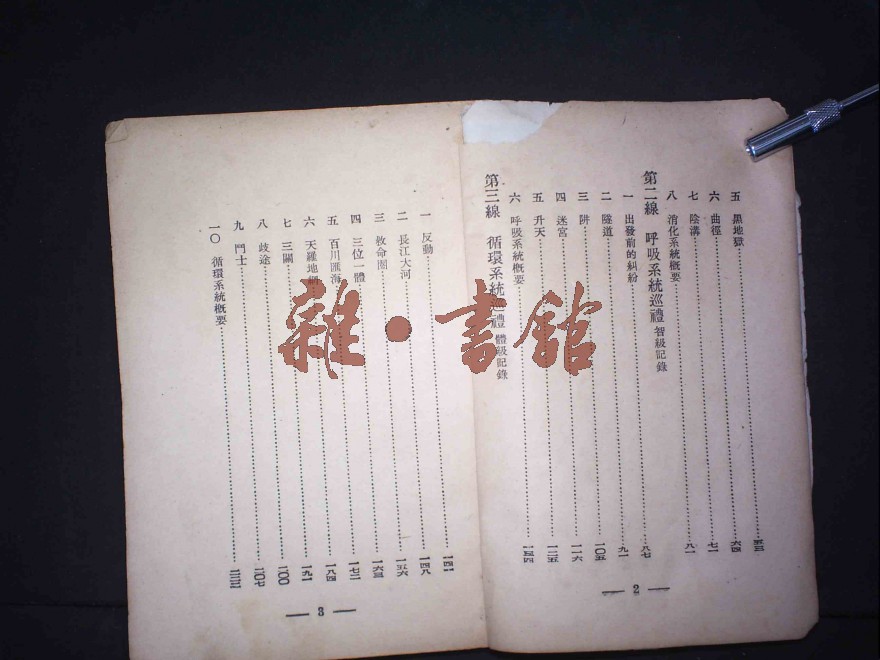 五 黑地獄 五三
六 曲徑 六四
七 陰溝 七一
八 消化系統概要 八一
第二線 呼吸系統巡禮 智級記錄
一 出發前的糾紛 八七
二 隧道 九一
三 阱 一〇五
四 迷宮 一一六
五 升天 一二五
六 呼吸系統概要
第三線 循環系統巡禮 體級記錄
— 2 —
一 反動 一四一
二 長江大河 一四八
三 救命圈 一五六
四 三位一體 一六三
五 百川匯海 一七二
六 天羅地網 一八四
七 三關 一九一
八 歧途 二〇〇
九 鬥士 二〇七
一〇 循環系統概要
— 3 —
雜·書館